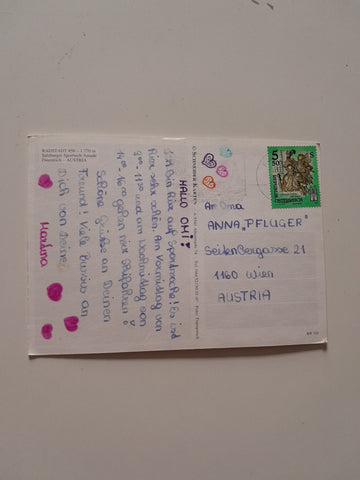 RADSTADT 856 – 1 770 m
Salzburger Sportwelt Amadé
Österreich – AUSTRIA
HALLO OMI
Ich bin hier auf Sportwoche! Es ist
hier sehr schön. Am Vormittag von
9°° - 11°° und am Nachmittag von
14°° - 16°° gehen wir Skifahren!
Schöne Grüße an Deinen
Freund! Viele Bussis an
Dich von Deiner
Martina
5 50
S
ÖSTERREICH
An Oma
ANNA „PFLUGER"
Seitenbergasse 21
1160 Wien
AUSTRIA